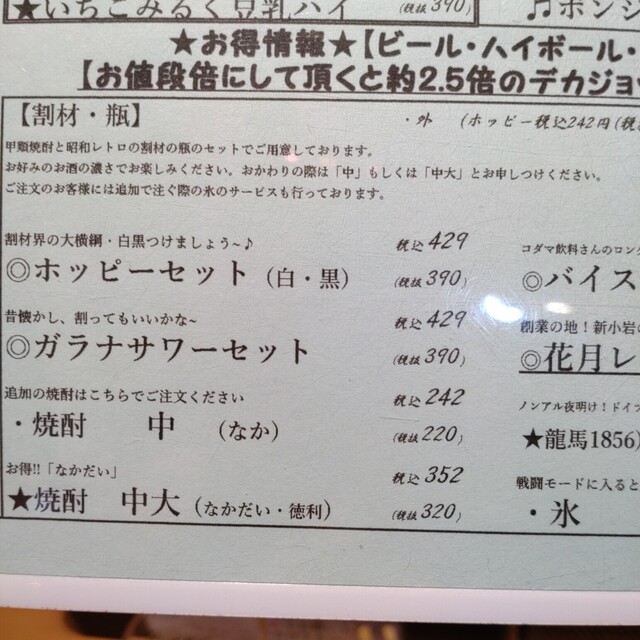 ★いちごみるく豆乳ハイ (税抜390)
★お得情報★【ビール・ハイボール・
【お値段倍にして頂くと約2.5倍のデカジョ
【割材・瓶】 ・外 (ホッピー税込242円(税
甲類焼酎と昭和レトロの割材の瓶のセットでご用意しております。
お好みのお酒の濃さでお楽しみください。おかわりの際は「中」もしくは「中大」とお申しつけください。
ご注文のお客様には追加で注ぐ際の氷のサービスも行っております。
割材界の大横綱・白黒つけましょう~♪ 税込429
◎ホッピーセット（白・黒） (税抜390)
昔懐かし、割ってもいいかな~ 税込429
◎ガラナサワーセット (税抜390)
追加の焼酎はこちらでご注文ください 税込242
・焼酎 中 （なか） (税抜220)
お得!!「なかだい」 税込352
★焼酎 中大（なかだい・徳利） (税抜320)
♬ボンシ
コダマ飲料さんのロング
◎バイス
創業の地！新小岩の
◎花月レ
ノンアル夜明け！ドイツ
★龍馬1856)
戦闘モードに入ると
・氷